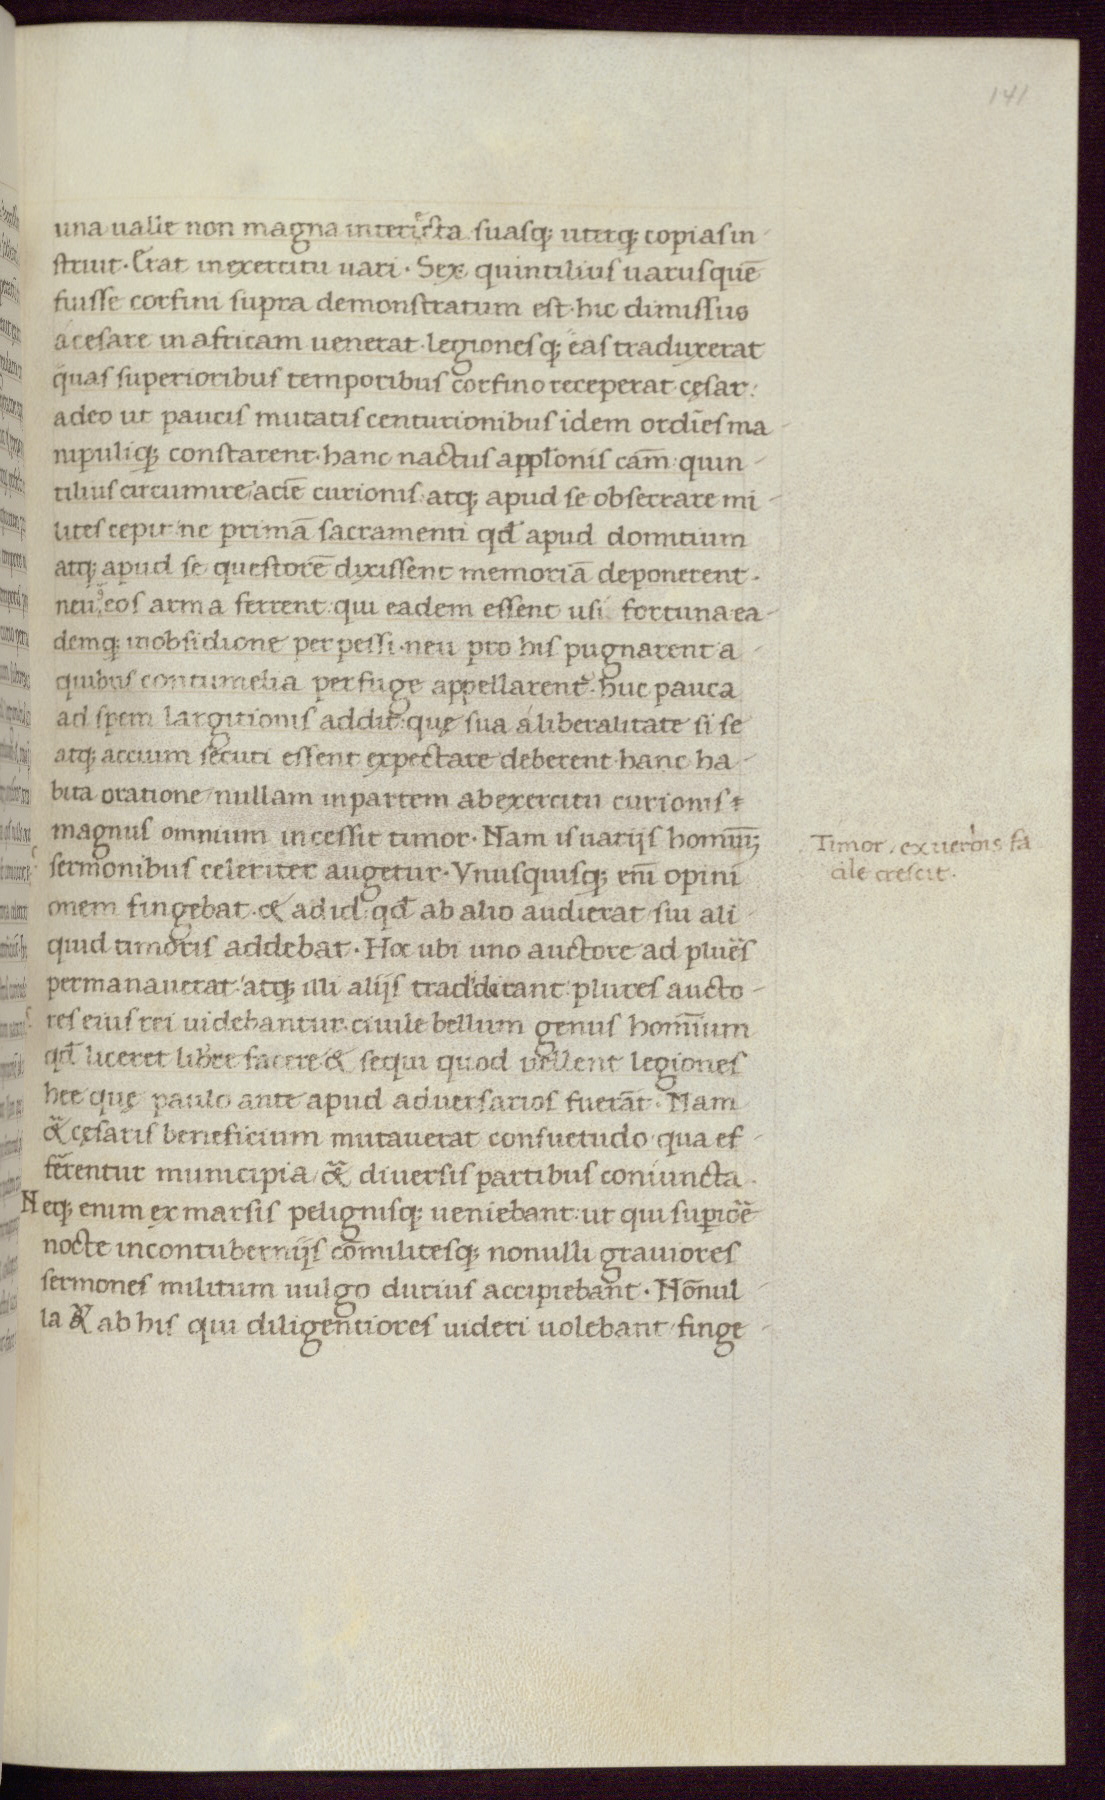 141
una ualle non magna interiecta suasq; uterq; copias in
struit. Erat in exercitu uari. Sex quintilius uarus quē
fuisse corfini supra demonstratum est. hic dimissus
a cesare in africam uenerat. legionesq; eas traduxerat
quas superioribus temporibus corfino receperat cęsar:
adeo ut paucis mutatis centurionibus idem ordīes ma
nipuliq; constarent. hanc nactus appl̄onis cām quin
tilius circumire aciē curionis. atq; apud se obsecrare mi
lites cepit ne primā sacramenti qd̄ apud domitium
atq; apud se questorē dixissent memoriā deponerent.
neu eos arma ferrent. qui eadem essent usi fortuna ea
demq; in obsidione perpessi. neu pro his pugnarent a
quibus contumelia perfuge appellarent̄. huc pauca
ad spem largitionis addit: quę sua a liberalitate si se
atq; accium secuti essent expectare deberent. hanc ha
bita oratione nullam in partem ab exercitu curionis t
magnus omnium incessit timor. Nam is uarijs homīnū;
Timor, ex uerbis fa
cile crescit.
sermonibus celeriter augetur. Vnusquisq; enī opini
onem fingebat. & ad id qd̄ ab alio audierat sui ali
quid timoris addebat. Hoc ubi uno auctore ad plurēs
permanauerat. atq; illi alijs tradiderant. plures aucto
res eius rei uidebantur. ciuile bellum genus homīnum
qd̄ liceret libere facere & sequi quod uellent legiones
hee quę paulo ante apud aduersarios fuerāt. Nam
& cęsaris beneficium mutauerat consuetudo qua ef
ferentur municipia & diuersis partibus coniuncta.
Neq; enim ex marsis pelignisq; ueniebant. ut qui supiōē
nocte in contubernijs cōmilitesq; nonulli grauiores
sermones militum uulgo durius accipiebant. Nōnul
la & ab his qui diligentiores uideri uolebant finge